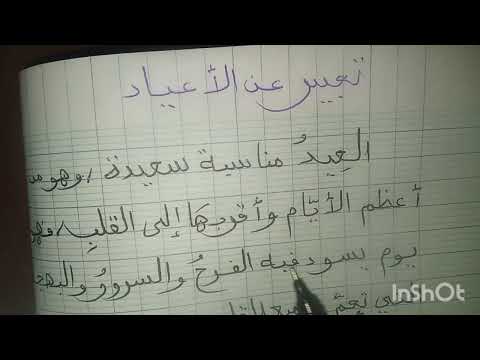 تعبير عن الأعياد
العِيدُ مناسبة سعيدة ,وهو
أعظم الأيّام وأقربها إلى القلبِ,
يوم يسود فيه الفرحُ والسرورُ والبهج
تعمّ
InShOt